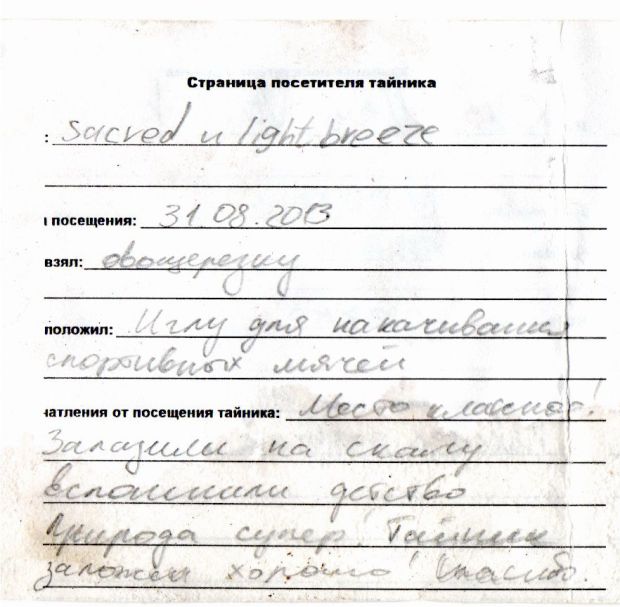 Страница посетителя тайника
: Sacred и light breeze
посещения: 31.08.2013
взял: овощерезку
положил: Иглу для накачивания
спортивных мячей
чатления от посещения тайника: Место классное!
Залазили на скалу
вспомнили детство
Природа супер! Тайник
заложен хорошо! Спасибо.